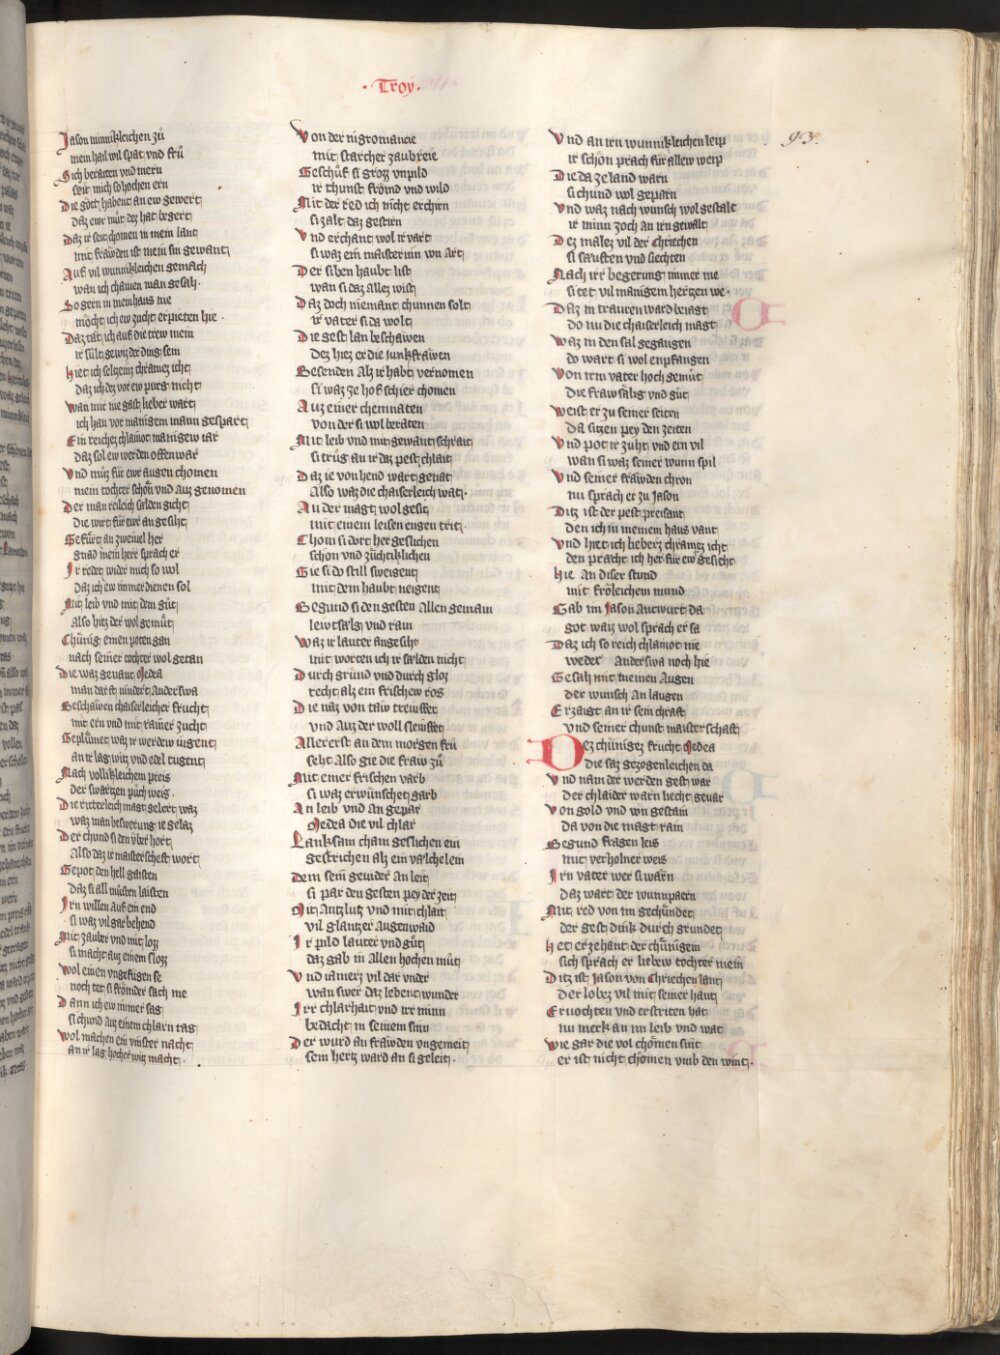 · Troy ·
93.
Jason minnikleichen zů
mein hail wil spat vnd frů
Sich beraten vnd mern
seit mich so hochen ern
Die gőtt habent an ew gewert
daz ewr můt dez hat begert
Daz ir seit chomen in mein lant
mit frawden ist mein sin gewant
Auf vil wunnikleichen gemach
wan ich chainen man gesah·
So gern in mein haus nie
mőcht ich ew zucht erpieten hie ·
Daz tăt ich auf die trew mein
ir sült gewis der ding sein
Hiet ich seltzem chramez icht
daz ich dez vor ew purg nicht
Wan mir nie gast lieber wart
ich han vor manigem mann gespart
Ein reichez chlainot manigew iar
daz sol ew werden offenwar
Vnd můz für ewr augen chomen
mein tochter schőn vnd auz genomen
Der man reileich sălden gicht
die wirt für ewr angesiht
Gefürt an zweiuel her
gnad mein herr sprach er
Ir redet wider mich so wol
daz ich ew immer dienen sol
Mit leib vnd mit dem gůt
Also hiez der wol gemůt
Chünig einen poten gan
nach seiner tochter wol getan
Die waz genant Medea
man darft nindert Anderswa
Beschawen chaiserleicher frucht
mit ern vnd mit rainer zucht
Geplümet waz ir werdew iugent
an ir lag witz vnd edel tugent
Nach vollikleichem preis
der swartzen půch weis ·
Die ritterleich magt gelert waz
waz man beswerung ie gelaz
Der chund si den vber hort
Also daz ir maisterscheft wort
Gepot den hell gaisten
daz si all můsten laisten
Irn willen Auf ein end
si waz vil gar behend
Mit zauber vnd mit loz
si macht auz einem sloz
Wol einen vngefügen se
noch tet si frőmder sach me
Dann ich ew immer sag
si chund Auz einem chlarn tag
Wol machen ein vinster nacht
an ir lag hocher witz macht ·
Von der nigromancie
mit starcher zaubreie
Geschůf si groz vnpild
ir chunst frömd vnd wild
Mit der red ich nicht erchirn
si zalt daz gestirn
Vnd erchant wol ir vart
si waz ein maisterinn von art
Der siben haubt list
wan si daz allez wist
Daz doch niemant chunnen solt
ir vater si da wolt
Die gest lan beschawen
Dez hiez er die junkfrawen
Besenden Alz ir habt vernomen
si waz ze hof schier chomen
Auz einer chemnaten
von der si wol beraten
Mit leib vnd mit gewant schrait
si trůg an ir daz pest chlait
Daz ie von hend wart genat
Also waz die chaiserleich wat·
An der magt wol gesit
mit einem leisen engen trit ·
Chom si dort her geslichen
schőn vnd züchtiklichen
Sie si do still sweigent
mit dem haubt neigent
Begund si den gesten Allen gemain
lewtsăls vnd rain
Waz ir lauter angesiht
mit worten ich ir sălden nicht
Durch gründ vnd durch gloz
recht alz ein frischew ros
Die naz von taw treiuffet
vnd Auz der woll sleiuffet
Allererst an dem morgen frü
seht Also gie die fraw zů
Mit einer frischen varb
si waz erwünschet garb
An leib vnd an gepar
Medea die vil chlar
Lanksam cham geslichen ein
gestrichen alz ein vălchelein
Dem sein gevider An leit
si par den gesten pey der zeit
Mit Antzlutz vnd mit chlait
vil glantzer Augenwaid
Ir pild lauter vnd gůt
daz gab in Allen hochen můt
Vnd iamerz vil dar vnder
wan swer daz lebent wunder
Irr chlarhait vnd irr minn
bedacht in seinem sinn
Der wurd an frawden vngemeit
sein hertz ward an si geleit ·
Vnd an irn wunnikleichen leip
ir schőn prach für allew weip
Die da ze land warn
si chund wol geparn
Vnd waz nach wunsch wol gestalt
ir minn zoch an irn gewalt
Dez mălez vil der Chriechen
si sausten vnd siechten
Nach irr begerung immer me
si tet vil manigem hertzen we ·
Daz in trauren ward beiagt
do nu die chaiserleich magt
Waz in den sal gegangen
do wart si wol enpfangen
Von irm vater hoch gemůt
die fraw sălig vnd gůt
Weist er zu seiner seiten
Da sitzen pey den zeiten
Vnd pot ir zuht vnd ern vil
wan si waz seiner wunn spil
Vnd seiner frawden chron
nu sprach er zu Jason
Ditz ist der pest preisant
Den ich in meinem haus vant
Vnd hiet ich lieberz chramez icht
den prăcht ich her für ew gesicht
Hie An diser stund
mit frőleichem mund
Gab im Jason Antwurt da
got waiz wol sprach er sa
Daz ich so reich chlainot nie
weder Anderswa noch hie
Gesah mit meinen Augen
der wunsch An laugen
Erzaigt an ir sein chraft
vnd seiner chunst maisterschaft
Dez chünigez frucht Medea
die saz gezogenleichen da
Vnd nam der werden gest war
Der chlaider warn liecht gevar
Von gold vnd von gestain
da von die magt rain
Begund fragen leis
mit verholner weis
Irn vater wer si warn
daz wart der wunnpaern
Mit red von im gechündet
der gest dink durch gründet
Het er zehant der chünigein
sich sprach er liebew tochter mein
Ditz ist Jason von Chriechen lant
Der lobez vil mit seiner hant
Eruochten vnd erstriten hat
nu merk an im leib vnd wat
Wie gar die vol chőmen sint
er ist nicht chőmen vmb den wint ·